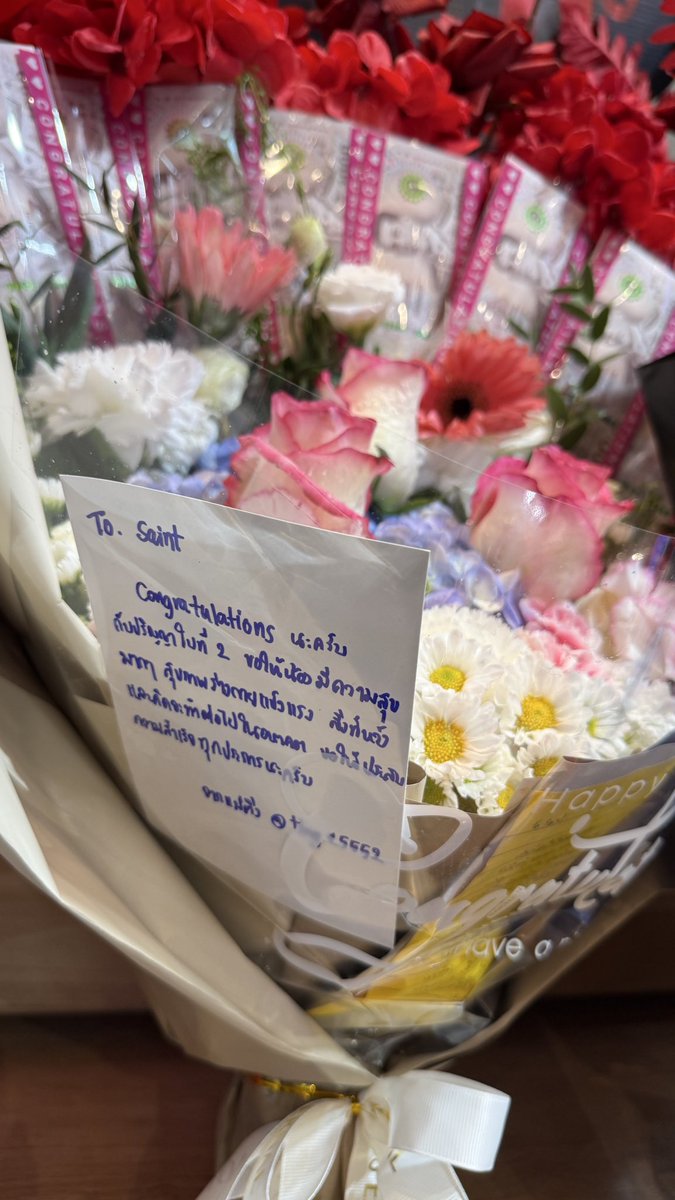 CONGRA
CONGRATUL
To. Saint
Congratulations นะครับ
กับปริญญาใบที่ 2 ขอให้น้องมีความสุข
มากๆ สุขภาพร่างกายแข็งแรง สิ่งที่หวัง
และคิดจะทำต่อไปในอนาคต ขอให้ประสบ
ความสำเร็จทุกประการนะครับ
Happy
have a